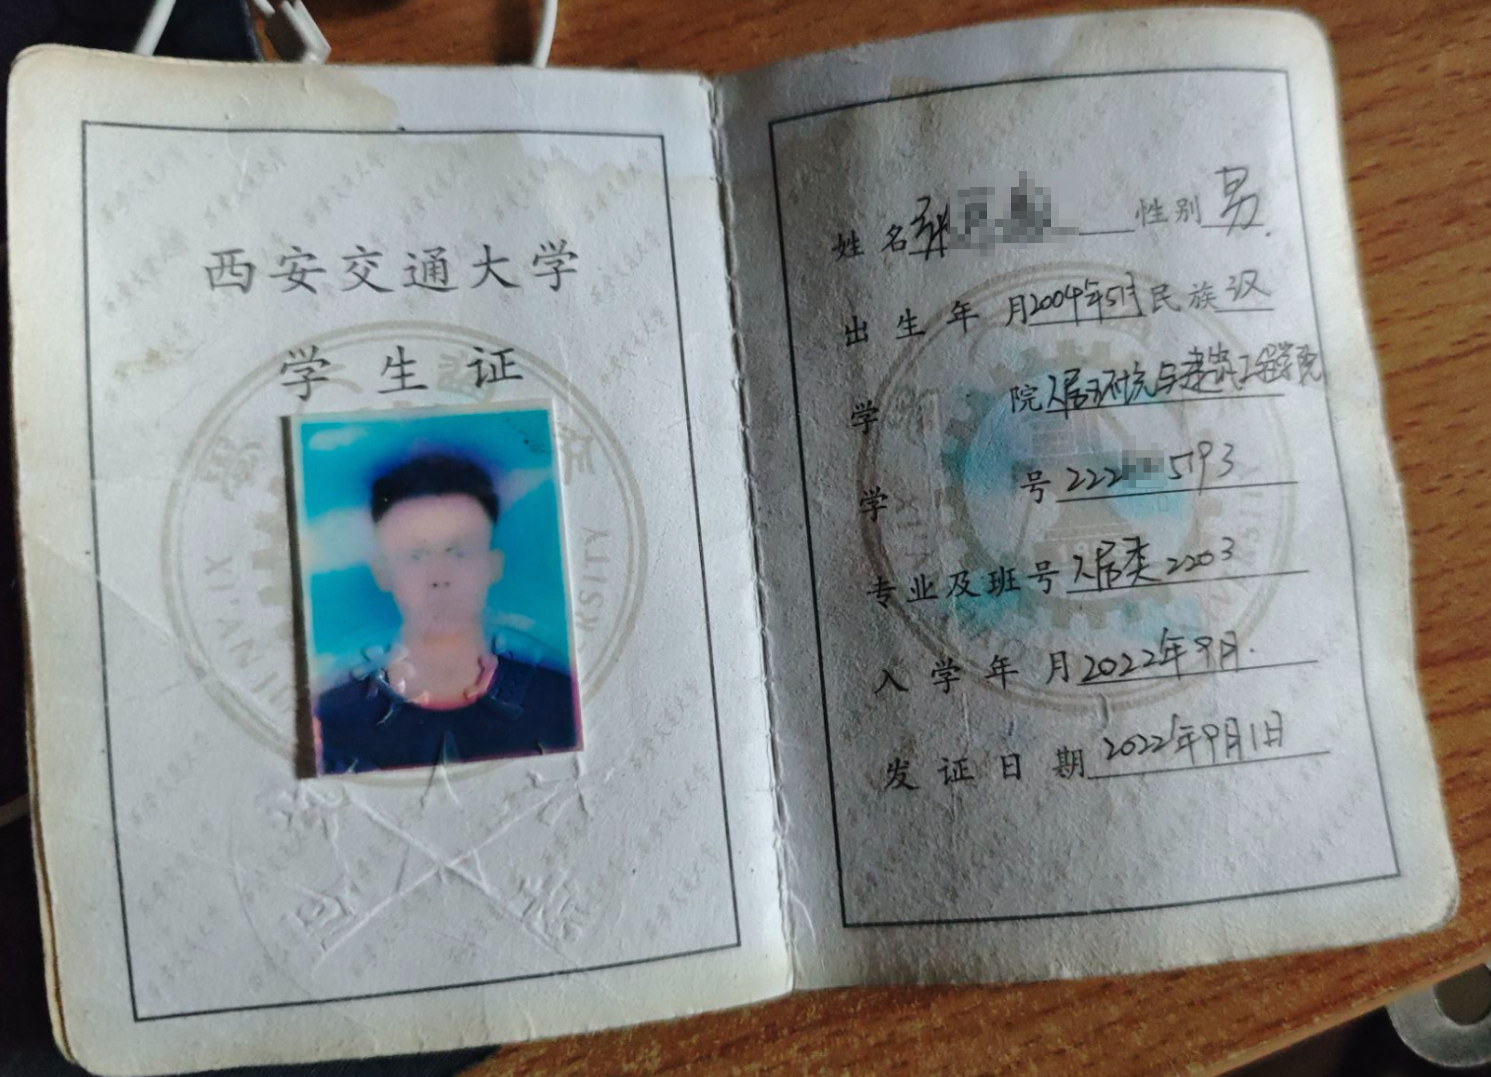 西安交通大学
学生证
姓名 性别 男
出生年月 2004年5月 民族 汉
学院 人居环境与建筑工程学院
学号 222 5193
专业及班号 人居类2203
入学年月 2022年9月.
发证日期 2022年9月1日